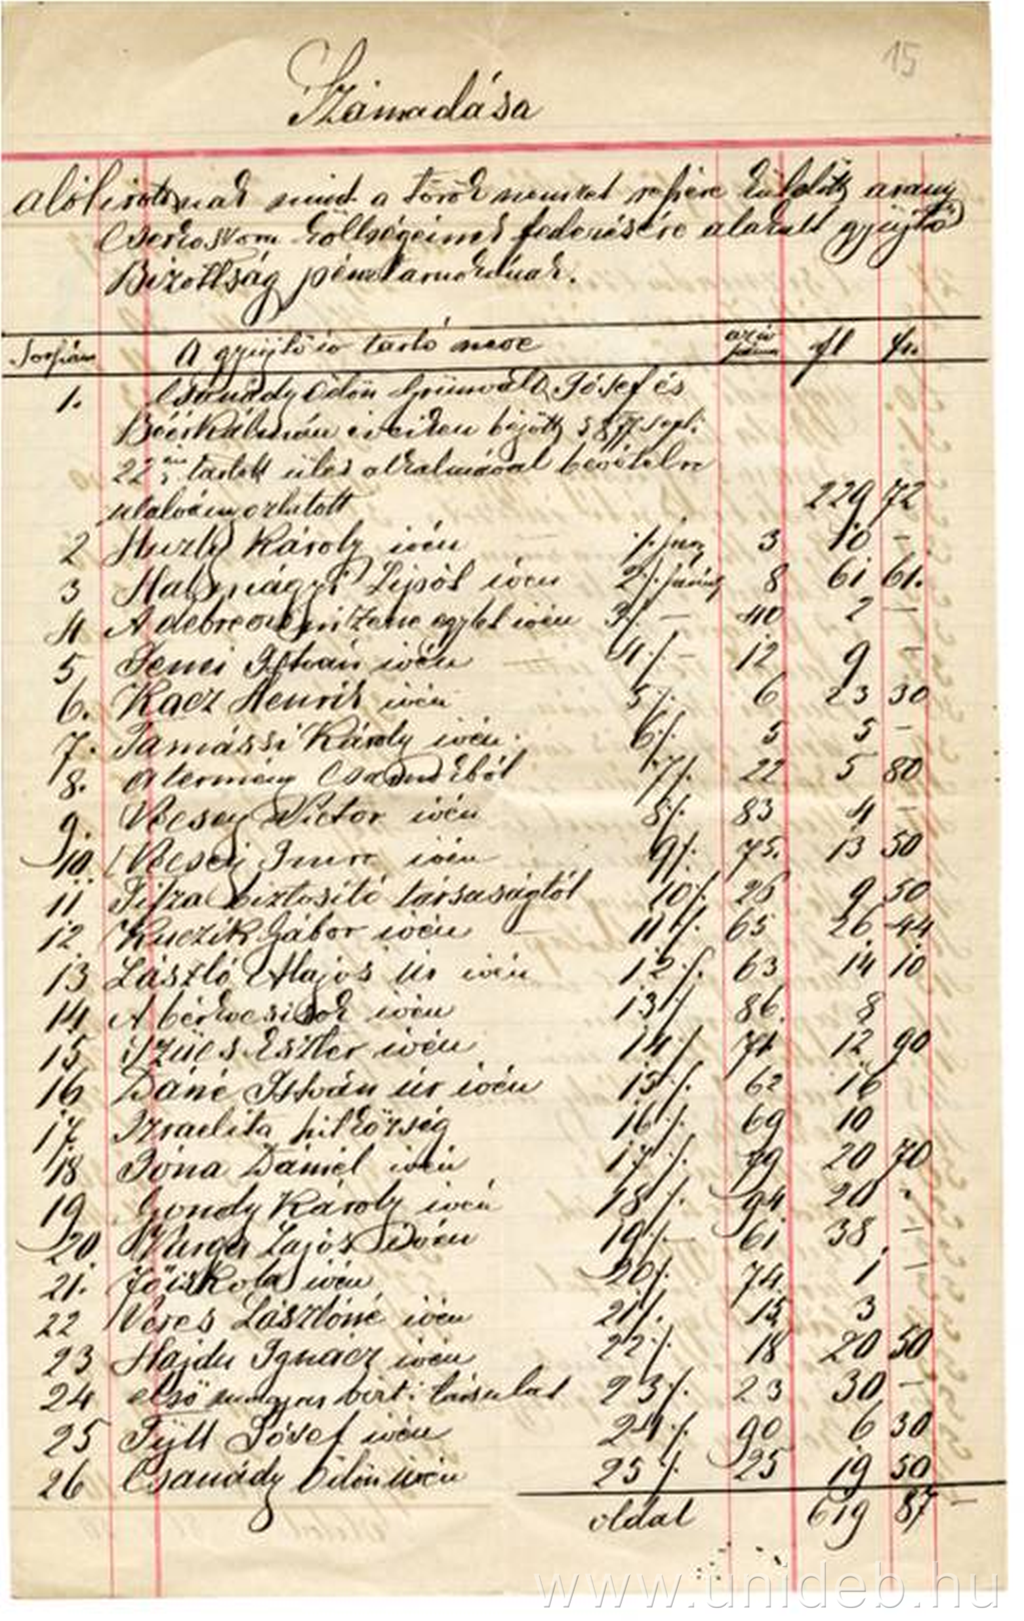 15
Számadása
alólirottnak mint a török nemzet részére küldött arany
Cserkoszorú költségeinek fedezésére alakult gyüjtő
Bizottság pénztarnokának.
Sorszám A gyüjtő iv tartó neve az iv száma ft kr.
1. Csanády Ödön Grünwald József és
Beér Kálmán iveiken bejött s 877 sept.
22 én tartott ülés alkalmával bevételre
utalványoztatott 229 72
2 Károly ivén 1./. 3 10 –
3 Halmágyi Lipót ivén 2./. 8 61 61.
4 A debreczeni zene egylet ivén 3./. – 40 2 –
5 István ivén 4./. – 12 9 –
6. Kacz Henrik ivén 5./. 6 23 30
7. Tamássi Károly ivén. 6./. 5 5 –
8. A termény Csarnokból 7./. 22 5 80
9. Vecsey Victor ivén 8./. 83 4 –
10. Vecsey Imre ivén 9./. 75. 13 50
11 Tisza biztositó társaságtól 10./. 26 9 50
12 Kuczik Gábor ivén – 11./. 65 26 44
13 László úr ivén 12./. 63 14 10
14 A bérkocsisok ivén 13./. 86. 8
15 Szücs Eszter ivén 14./. 71 12 90
16 Dáné István úr ivén 15./. 62 16
17 Izraelita hitközség 16./. 69 10
18 Jóna Dániel ivén 17./. 79 20 70
19 Gondy Károly ivén 18./. 94 20 –
20 Varga Lajos ivén 19./. – 61 38 –
21. Főiskola ivén 20./. 74. 1 –
22 Veres Lászlóné ivén 21./. 15 3
23 Hajdu Ignácz ivén 22./. 18 20 50
24 első magyar bizt: társulat 23./. 23 30 –
25 József ivén 24./. 90 6 30
26 Csanády Ödön ivén 25./. 25 19 50
oldal 619 87 –
www.unideb.hu